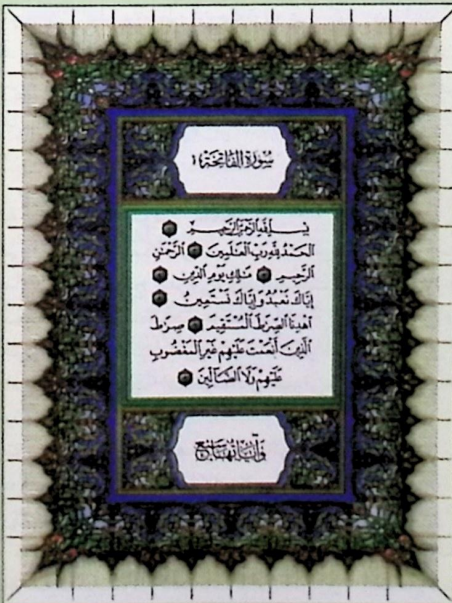 سورة الفاتحة
بسم الله الرحمن الرحيم
الحمد لله رب العلمين الرحمن
الرحيم ملك يوم الدين
إياك نعبد وإياك نستعين
اهدنا الصرط المستقيم صرط
الذين أنعمت عليهم غير المغضوب
عليهم ولا الضالين
وآياتها سبع